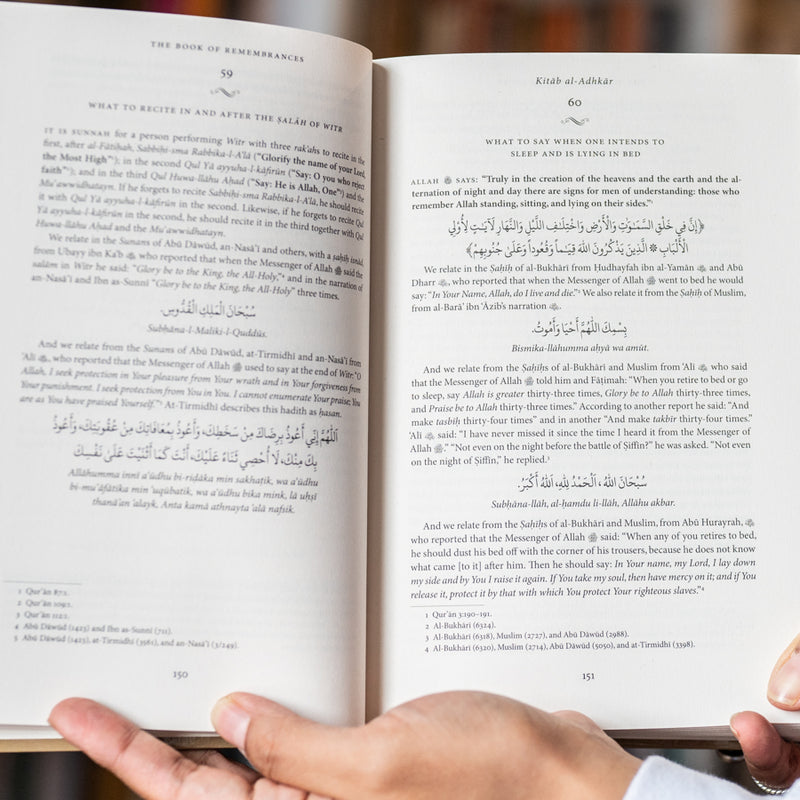 THE BOOK OF REMEMBRANCES
59
WHAT TO RECITE IN AND AFTER THE ṢALĀH OF WITR
IT IS SUNNAH for a person performing Witr with three rak'ahs to recite in the
first, after al-Fātiḥah, Sabbiḥi-sma Rabbika-l-A'lā ("Glorify the name of your Lord,
the Most High"¹); in the second Qul Yā ayyuha-l-kāfirūn ("Say: O you who reject
faith"²); and in the third Qul Huwa-llāhu Aḥad ("Say: He is Allah, One"³) and the
Mu'awwidhatayn. If he forgets to recite Sabbiḥi-sma Rabbika-l-A'lā, he should recite
it with Qul Yā ayyuha-l-kāfirūn in the second. Likewise, if he forgets to recite Qul
Yā ayyuha-l-kāfirūn in the second, he should recite it in the third together with Qul
Huwa-llāhu Aḥad and the Mu'awwidhatayn.
We relate in the Sunans of Abū Dāwūd, an-Nasā'ī and others, with a ṣaḥīḥ isnād,
from Ubayy ibn Ka'b, who reported that when the Messenger of Allah ﷺ said the
salām in Witr he said: "Glory be to the King, the All-Holy,"⁴ and in the narration of
an-Nasā'ī and Ibn as-Sunnī "Glory be to the King, the All-Holy" three times.
سُبْحَانَ الْمَلِكِ الْقُدُّوسِ.
Subḥāna-l-Maliki-l-Quddūs.
And we relate from the Sunans of Abū Dāwūd, at-Tirmidhī and an-Nasā'ī from
'Alī, who reported that the Messenger of Allah ﷺ used to say at the end of Witr: "O
Allah, I seek protection in Your pleasure from Your wrath and in Your forgiveness from
Your punishment. I seek protection from You in You. I cannot enumerate Your praise; You
are as You have praised Yourself."⁵ At-Tirmidhī describes this hadith as ḥasan.
اَللَّهُمَّ إِنِّي أَعُوذُ بِرِضَاكَ مِنْ سَخَطِكَ، وَأَعُوذُ بِمُعَافَاتِكَ مِنْ عُقُوبَتِكَ، وَأَعُوذُ
بِكَ مِنْكَ، لَا أُحْصِي ثَنَاءً عَلَيْكَ، أَنْتَ كَمَا أَثْنَيْتَ عَلَى نَفْسِكَ
Allāhumma innī a'ūdhu bi-riḍāka min sakhaṭik, wa a'ūdhu
bi-mu'āfātika min 'uqūbatik, wa a'ūdhu bika mink, lā uḥṣī
thanā'an 'alayk, Anta kamā athnayta 'alā nafsik.
1 Qur'ān 87:1.
2 Qur'ān 109:1.
3 Qur'ān 112:1.
4 Abū Dāwūd (1423) and Ibn as-Sunnī (711).
5 Abū Dāwūd (1425), at-Tirmidhī (3561), and an-Nasā'ī (3/249).
150
Kitāb al-Adhkār
60
WHAT TO SAY WHEN ONE INTENDS TO
SLEEP AND IS LYING IN BED
ALLAH SAYS: "Truly in the creation of the heavens and the earth and the al-
ternation of night and day there are signs for men of understanding: those who
remember Allah standing, sitting, and lying on their sides."¹
﴿إِنَّ فِي خَلْقِ السَّمَـٰوَٰتِ وَالْأَرْضِ وَاخْتِلَـٰفِ اللَّيْلِ وَالنَّهَارِ لَآيَـٰتٍ لِأُوْلِي
الْأَلْبَابِ ۞ الَّذِينَ يَذْكُرُونَ اللهَ قِيَـٰماً وَقُعُوداً وَعَلَىٰ جُنُوبِهِمْ﴾
We relate in the Ṣaḥīḥ of al-Bukhārī from Ḥudhayfah ibn al-Yamān and Abū
Dharr, who reported that when the Messenger of Allah ﷺ went to bed he would
say: "In Your Name, Allah, do I live and die."² We also relate it from the Ṣaḥīḥ of Muslim,
from al-Barā' ibn 'Āzib's narration.
بِسْمِكَ اللَّهُمَّ أَحْيَا وَأَمُوتُ.
Bismika-llāhumma aḥyā wa amūt.
And we relate from the Ṣaḥīḥs of al-Bukhārī and Muslim from 'Alī who said
that the Messenger of Allah ﷺ told him and Fāṭimah: "When you retire to bed or go
to sleep, say Allah is greater thirty-three times, Glory be to Allah thirty-three times,
and Praise be to Allah thirty-three times." According to another report he said: "And
make tasbīḥ thirty-four times" and in another "And make takbīr thirty-four times."
'Alī said: "I have never missed it since the time I heard it from the Messenger of
Allah ﷺ." "Not even on the night before the battle of Ṣiffīn?" he was asked. "Not even
on the night of Ṣiffīn," he replied.³
سُبْحَانَ اللهُ ، اَلْحَمْدُ لِلهِ، اَللهُ أَكْبَرُ.
Subḥāna-llāh, al-ḥamdu li-llāh, Allāhu akbar.
And we relate from the Ṣaḥīḥs of al-Bukhārī and Muslim, from Abū Hurayrah,
who reported that the Messenger of Allah ﷺ said: "When any of you retires to bed,
he should dust his bed off with the corner of his trousers, because he does not know
what came [to it] after him. Then he should say: In Your name, my Lord, I lay down
my side and by You I raise it again. If You take my soul, then have mercy on it; and if You
release it, protect it by that with which You Protect Your righteous slaves."⁴
1 Qur'ān 3:190–191.
2 Al-Bukhārī (6324).
3 Al-Bukhārī (6318), Muslim (2727), and Abū Dāwūd (2988).
4 Al-Bukhārī (6320), Muslim (2714), Abū Dāwūd (5050), and at-Tirmidhī (3398).
151